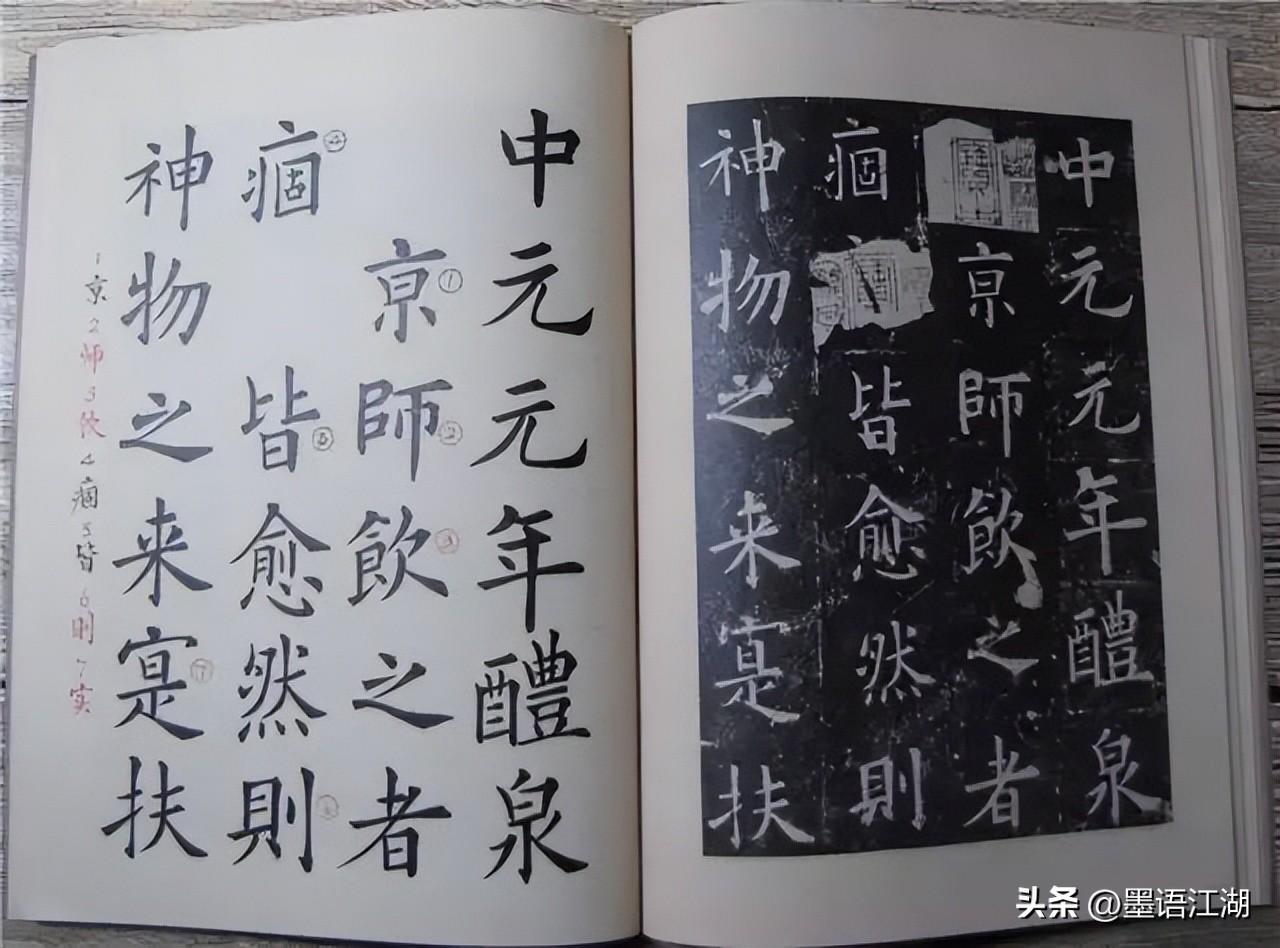 中元元年醴泉
亰師飲之者
痼皆愈然則
神物之来寔扶
中元元年醴泉
亰①師②飲③之者
痼④皆⑤愈然則⑥
神物之来寔⑦扶
1京2师3饮4痼5皆6则7实
头条 @墨语江湖